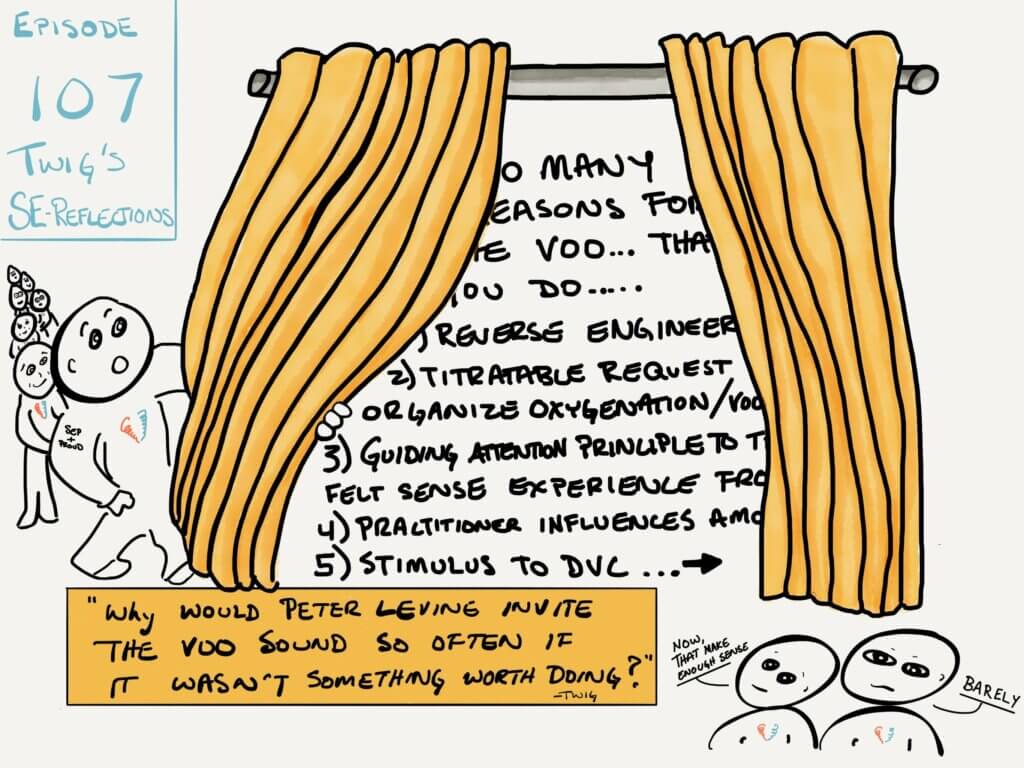 EPISODE
107
TWIG'S
SE-REFLECTIONS
O MANY
EASONS FOR
HE VOO... THA
YOU DO.....
) REVERSE ENGINEER
2) TITRATABLE REQUEST
ORGANIZE OXYGENATION/VOO
3) GUIDING ATTENTION PRINCIPLE TO T
FELT SENSE EXPERIENCE FRO
4) PRACTITIONER INFLUENCES AMO
5) STIMULUS TO DVC ...→
SEP
+
PROUD
"WHY WOULD PETER LEVINE INVITE
THE VOO SOUND SO OFTEN IF
IT WASN'T SOMETHING WORTH DOING?"
-TWIG
NOW,
THAT MAKE
ENOUGH SENSE
BARELY